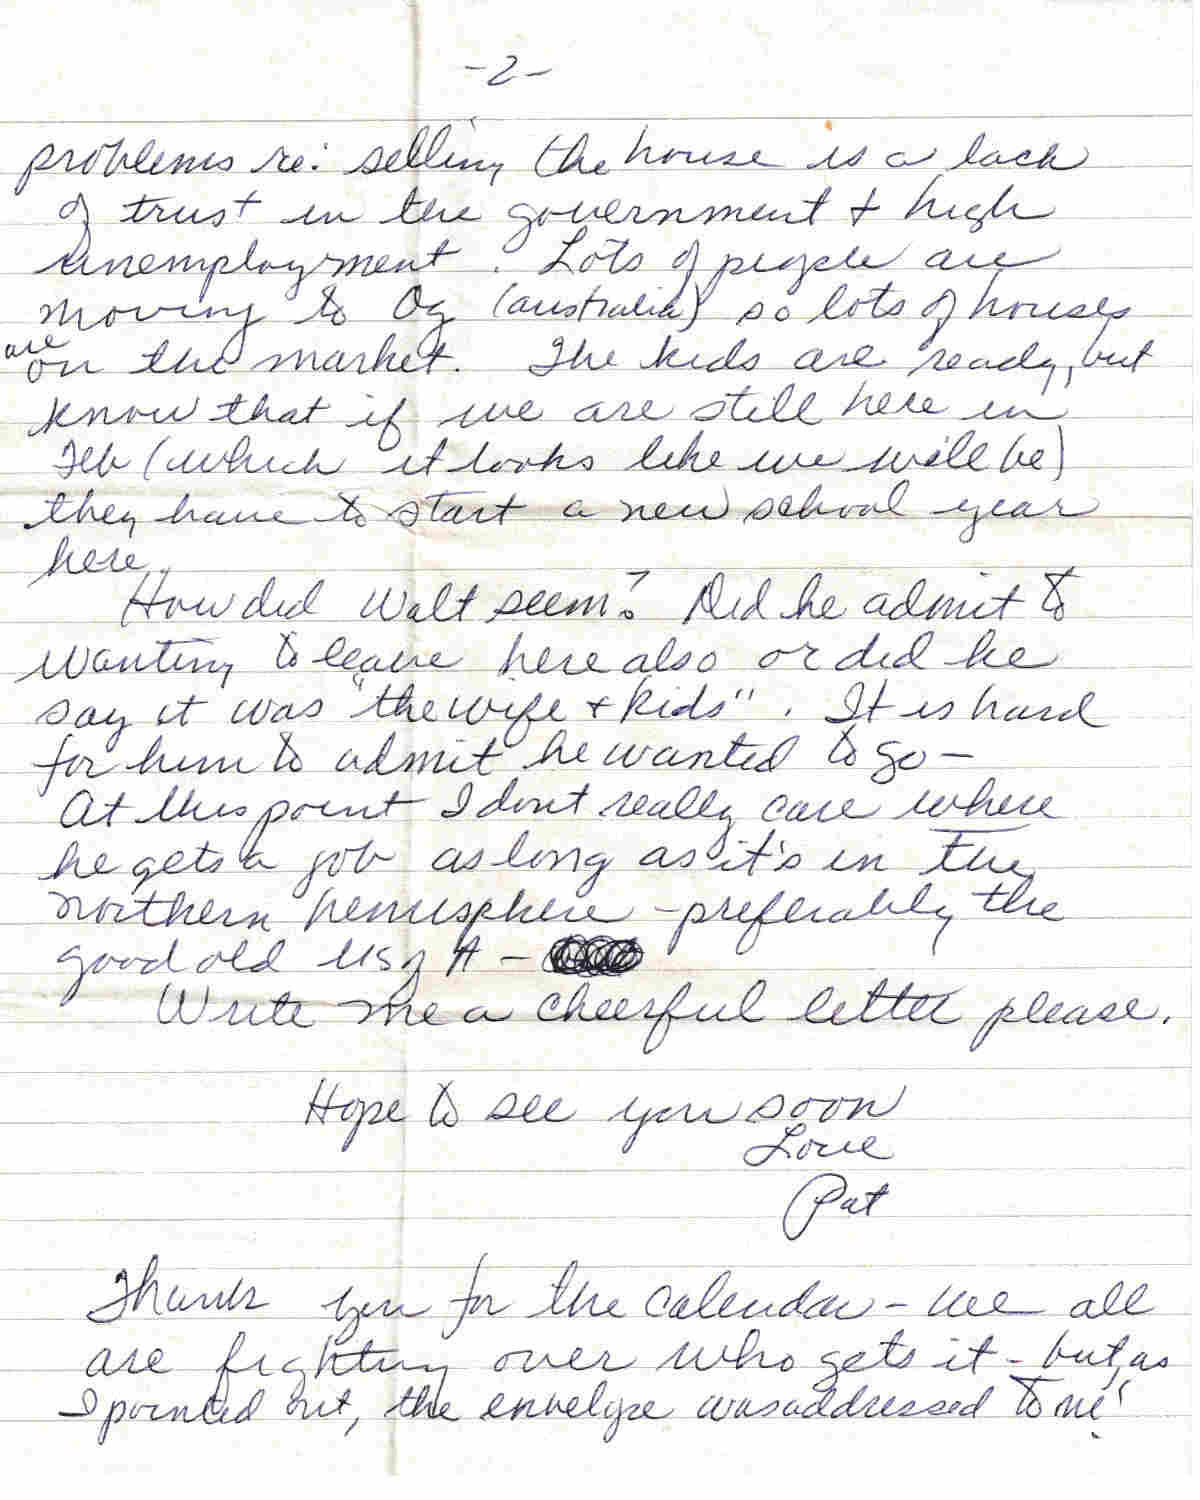 -2-
problems re: selling the house is a lack
of trust in the government + high
unemployment. Lots of people are
moving to Oz (australia) so lots of houses
are on the market. The kids are ready, but
know that if we are still here in
Feb (which it looks like we will be)
they have to start a new school year
here.
How did Walt seem? Did he admit to
wanting to leave here also or did he
say it was "the wife + kids". It is hard
for him to admit he wanted to go -
At this point I dont really care where
he gets a job as long as it's in the
northern hemisphere - preferably the
good old US of A -
Write me a cheerful letter please.
Hope to see you soon
Love
Pat
Thank you for the calendar - we all
are fighting over who gets it - but, as
I pointed out, the envelope was addressed to me!